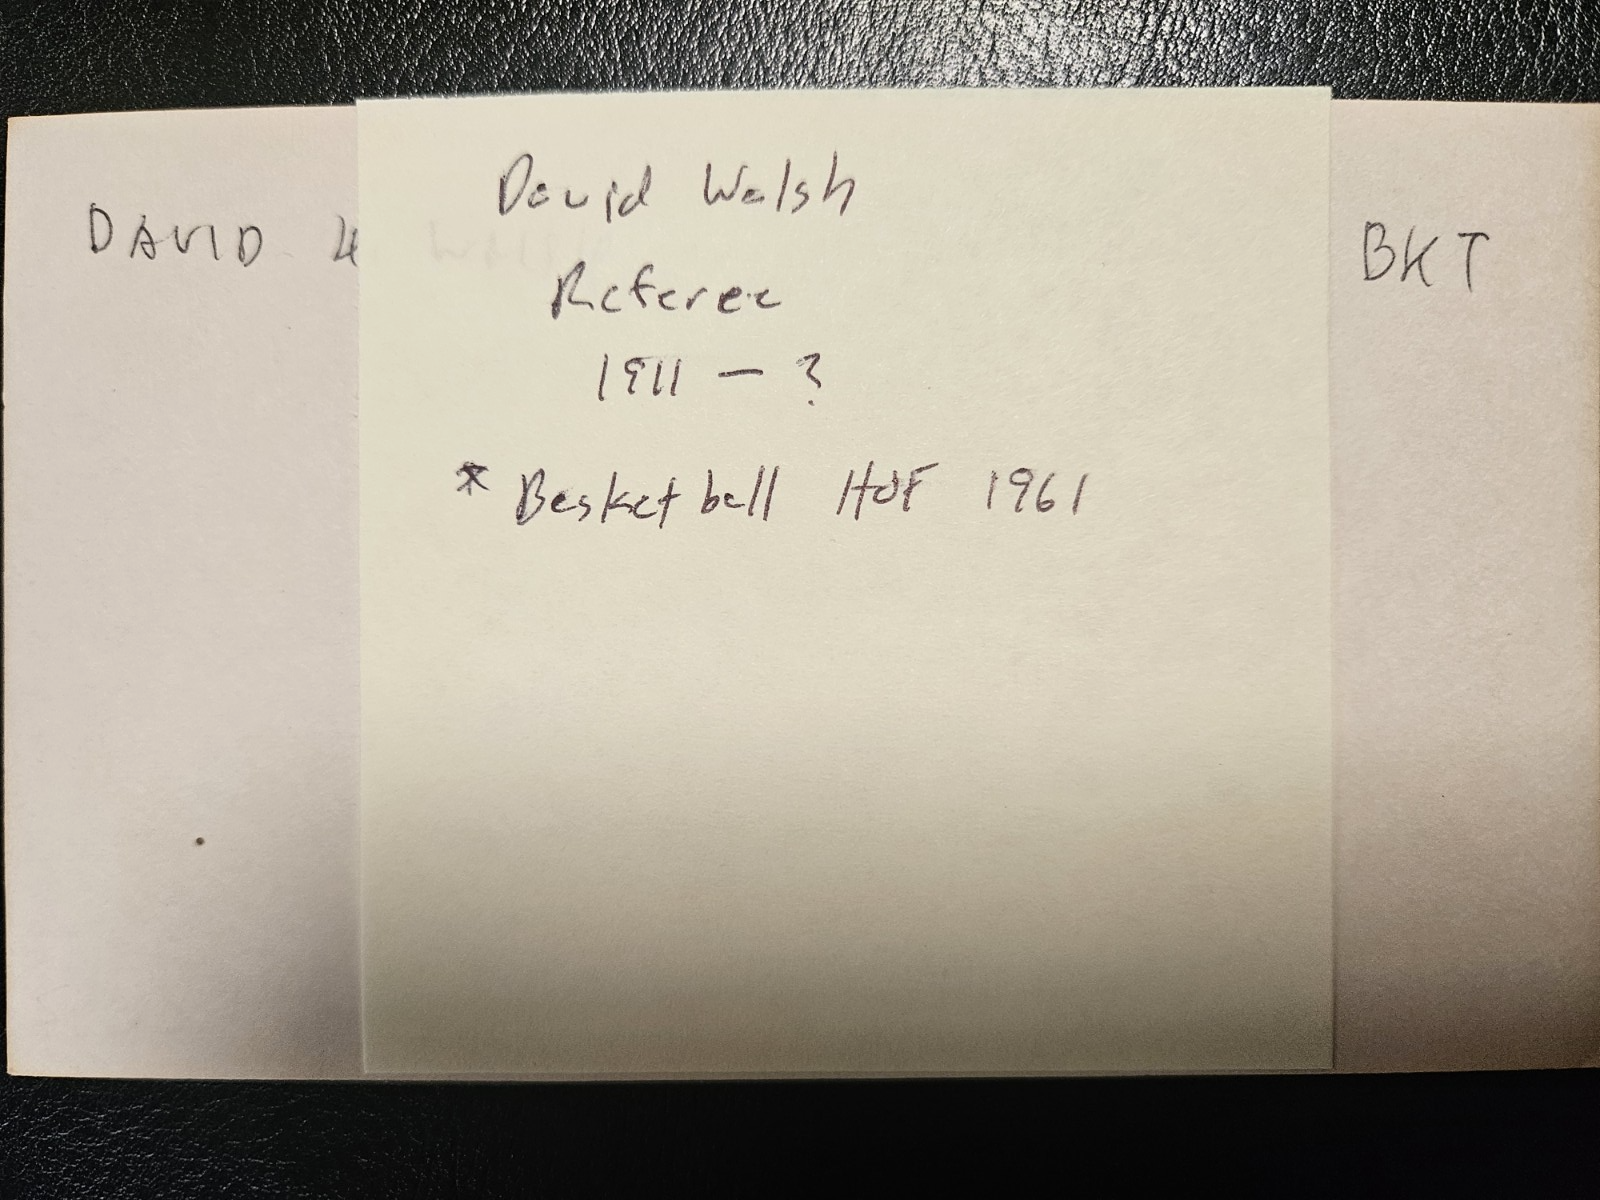 David Walsh
Referee
1911 – ?
* Basketball HOF 1961
DAVID
BKT